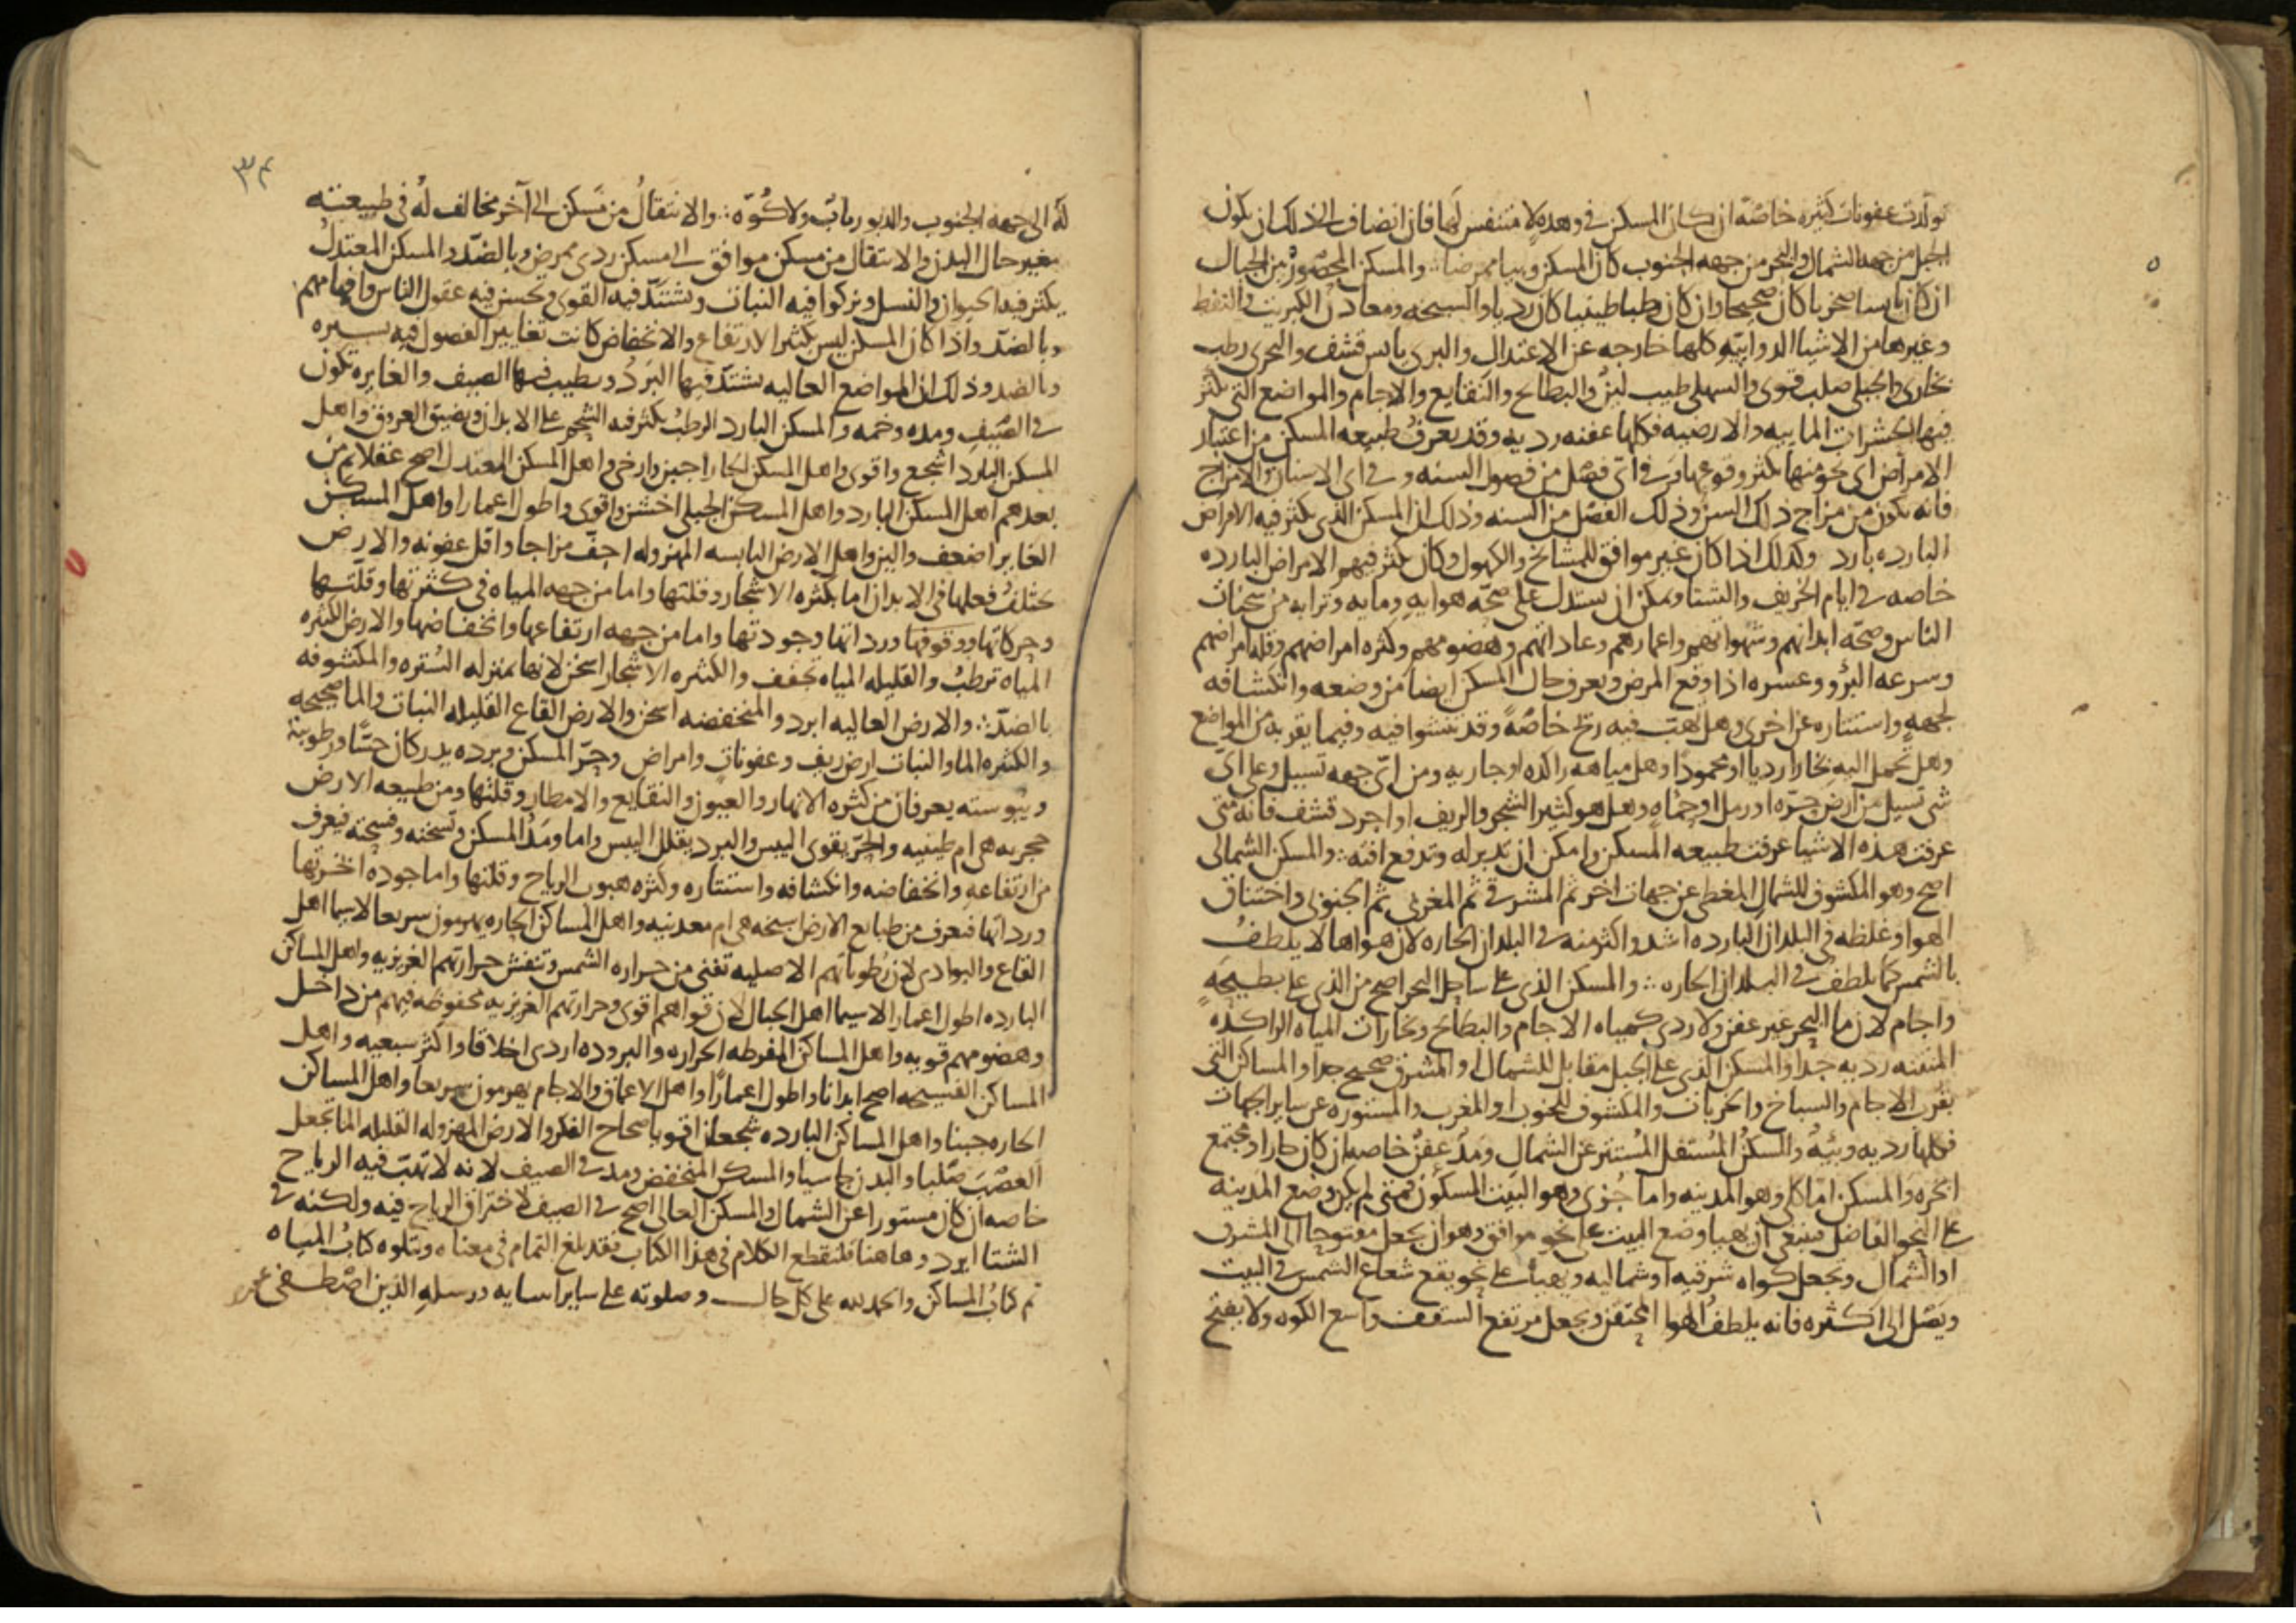 تولدت عفونات كثيره خاصّة ان كان المسكن في وهدهٍ لا متنفس لها فان انضاف الى ذلك ان يكون
الجبل من جهه الشمال والبحر من جهه الجنوب كان المسكن وبيا ممرضا ∴ والمسكن المحصور بين الجبال
ان كان يابسا صخريا كان صحيحا وان كان رطبا طينيا كان رديا والسبخه ومعادن الكبريت والنفط
وغيرها من الاشيا الدوابيّه كلها خارجه عن الاعتدال والبرى يابس قشف والبحرى رطب
بخارى والجبلى صلب قوى والسهلى طيب لين والبطايح والنقايع والاجام والمواضع التى تكثر
فيها الحشرات الماييه والارضيه فكلها عفنه رديه وقد يعرف طبيعه المسكن من اعتبار
الامراض اى نحو منها يكثر وقوعها وفى اىّ فصل من فصول السنه وفى اى الاسنان والامزاج
فانه يكون من مزاج ذلك السن وذلك الفصل من السنه وذلك ان المسكن الذى يكثر فيه الامراض
البارده بارد وكذلك اذا كان غير موافق للمشايخ والكهول وكان يكثر فيهم الامراض البارده
خاصه فى ايام الخريف والشتا ويمكن ان يستدل على صحّه هوايه ومايه وترابه من سحنات
الناس وصحّه ابدانهم وشهواتهم واعمارهم وعاداتهم وهضومهم وكثره امراضهم وقله امراضهم
وسرعه البرؤ وعسره اذا وقع المرض ويعرف حال المسكن ايضا من وضعه وانكشافه
لجههٍ واستتاره عن اخرى وهل تهب فيه ريح خاصّةً وقد تنشوا فيه وفيما يقرب من المواضع
وهل تحمل اليه بخارا رديا او محمودا وهل مياهه راكده او جاريه ومن اىّ جهه تسيل وعلى اىّ
شى تسيل من ارض حرّه او رمل او حماه وهل هو كثير الشجر والريف او اجرد قشف فانه متى
عرفت هذه الاشيا عرفت طبيعه المسكن وامكن ان تدبر له وتدفع افته ∴ والمسكن الشمالى
اصح وهو المكشوف للشمال المغطى عن جهات اخر ثم المشرقى ثم المغربى ثم الجنوبى واختناق
الهوا وغلظه فى البلدان البارده اشد واكثر منه فى البلدان الحاره لان هواها لا يلطف
بالشمس كما يلطف فى البلدان الحاره ∴ والمسكن الذى على ساحل البحر اصح من الذى على بطيحةٍ
واجام لان ما البحر غير عفن ولا ردى كمياه الاجام والبطايح وبخارات المياه الراكده
المنتنه رديه جدا والمسكن الذى على الجبل مقابل للشمال او المشرق صحيح جدا والمساكن التى
بقرب الاجام والسباخ والخربات والمكشوف للجنوب او المغرب والمستوره عن ساير الجهات
فكلها رديه وبئيه والمسكن المستفل المستتر عن الشمال ومدٌ عفنٌ خاصه ان كان حارا ومجتمع
ابخره والمسكن امّا كلى وهو المدينه واما جزوى وهو البيت المسكون فمتى لم يكن وضع المدينه
على النحو الفاضل فينبغى ان يهيا وضع البيت على نحو موافق وهو ان يجعل مفتوحا الى المشرق
او الشمال وتجعل كواه شرقيه او شماليه ويهيأ على نحو يقع شعاع الشمس فى البيت
ويصل الى اكثره فانه يلطف الهوا المحتقن ويجعل مرتفع السقف واسع الكوه ولا يفتح
٣٤
له الى جهه الجنوب والدبور باب ولا كوّه ∴ والانتقال من مسكن الى آخر مخالف له فى طبيعته
يغير حال البدن والانتقال من مسكن موافق الى مسكن ردى ممرض وبالضدّ والمسكن المعتدل
يكثر فيه الحيوان والنسل ويزكوا فيه النبات وتشتدّ فيه القوى وتحسن فيه عقول الناس وافهامهم
وبالضدّ واذا كان المسكن ليس بكثير الارتفاع والانخفاض كانت تغايير الفصول فيه يسيره
وبالضد وذلك ان المواضع العاليه يشتدّ فيها البرد ويطيب فيها الصيف والغايره تكون
فى الصّيف ومده وخمه والمسكن البارد الرطب يكثر فيه الشحم على الابدان ويضيق العروق واهل
المسكن البارد اشجع واقوى واهل المسكن الحار اجبن وارخى واهل المسكن المعتدل اصح عقلا ثم من
بعدهم اهل المسكن البارد واهل المسكن الجبلى اخشن واقوى واطول اعمارا واهل المسكن
الغاير اضعف والين واهل الارض اليابسه المهزوله اجفّ مزاجا واقل عفونه والارض
تختلف فعلها فى الابدان اما بكثره الاشجار وقلتها واما من جهه المياه فى كثرتها وقلّتها
وحركاتها ووقوفها ورداتها وجودتها واما من جهه ارتفاعها وانخفاضها والارض الكثيره
المياه ترطب والقليله المياه تجفف والكثيره الاشجار اسخن لانها بمنزله السّتره والمكشوفه
بالضدّ ∴ والارض العاليه ابرد والمنخفضه اسخن والارض القاع القليله النبات والما صحيحه
والكثيره الما والنبات ارض ريف وعفونات وامراض وحرّ المسكن وبرده يدركان حسًّا ورطوبته
ويبوسته يعرفان من كثره الانهار والعيون والنقايع والامطار وقلتها ومن طبيعه الارض
حجريه هى ام طينيه والحرّ يقوى اليبس والبرد يقلل اليبس واما ومد المسكن وتسخنه وفسحته فيعرف
من ارتفاعه وانخفاضه وانكشافه واستتاره وكثره هبوب الرياح وقلتها واما جوده ابخرتها
ورداتها فيعرف من طبايع الارض سبخه هى ام معدنيه واهل المساكن الحاره يهرمون سريعا لاسيما اهل
القاع والبوادى لان رطوباتهم الاصليه تفنى من حراره الشمس وتنفش حرارتهم الغريزيه واهل المساكن
البارده اطول اعمارا لاسيما اهل الجبال لان قواهم اقوى وحرارتهم الغريزيه محفوظه فيهم من داخل
وهضومهم قويه واهل المساكن المفرطه الحراره والبروده اردى اخلاقا واكثر سبعيه واهل
المساكن الفسيحه اصح ابدانا واطول اعمارًا واهل الاعماق والاجام يهرمون سريعا واهل المساكن
الحاره جبنا واهل المساكن البارده شجعان اقويا صحاح الفكر والارض المهزوله القليله الما تجعل
العصب صلبا والبدن جاسيا والمسكن المنخفض ومد فى الصيف لانه لا تهبّ فيه الرياح
خاصه ان كان مستورا عن الشمال والمسكن العالى اصح فى الصيف لاختراق الرياح فيه ولكنه فى
الشتا ابرد وهاهنا فلنقطع الكلام فى هذا الكتاب فقد بلغ التمام فى معناه ويتلوه كتاب المياه
تم كتاب المساكن والحمد لله على كل حال وصلوته على ساير انبيايه ورسله الذين اصطفى